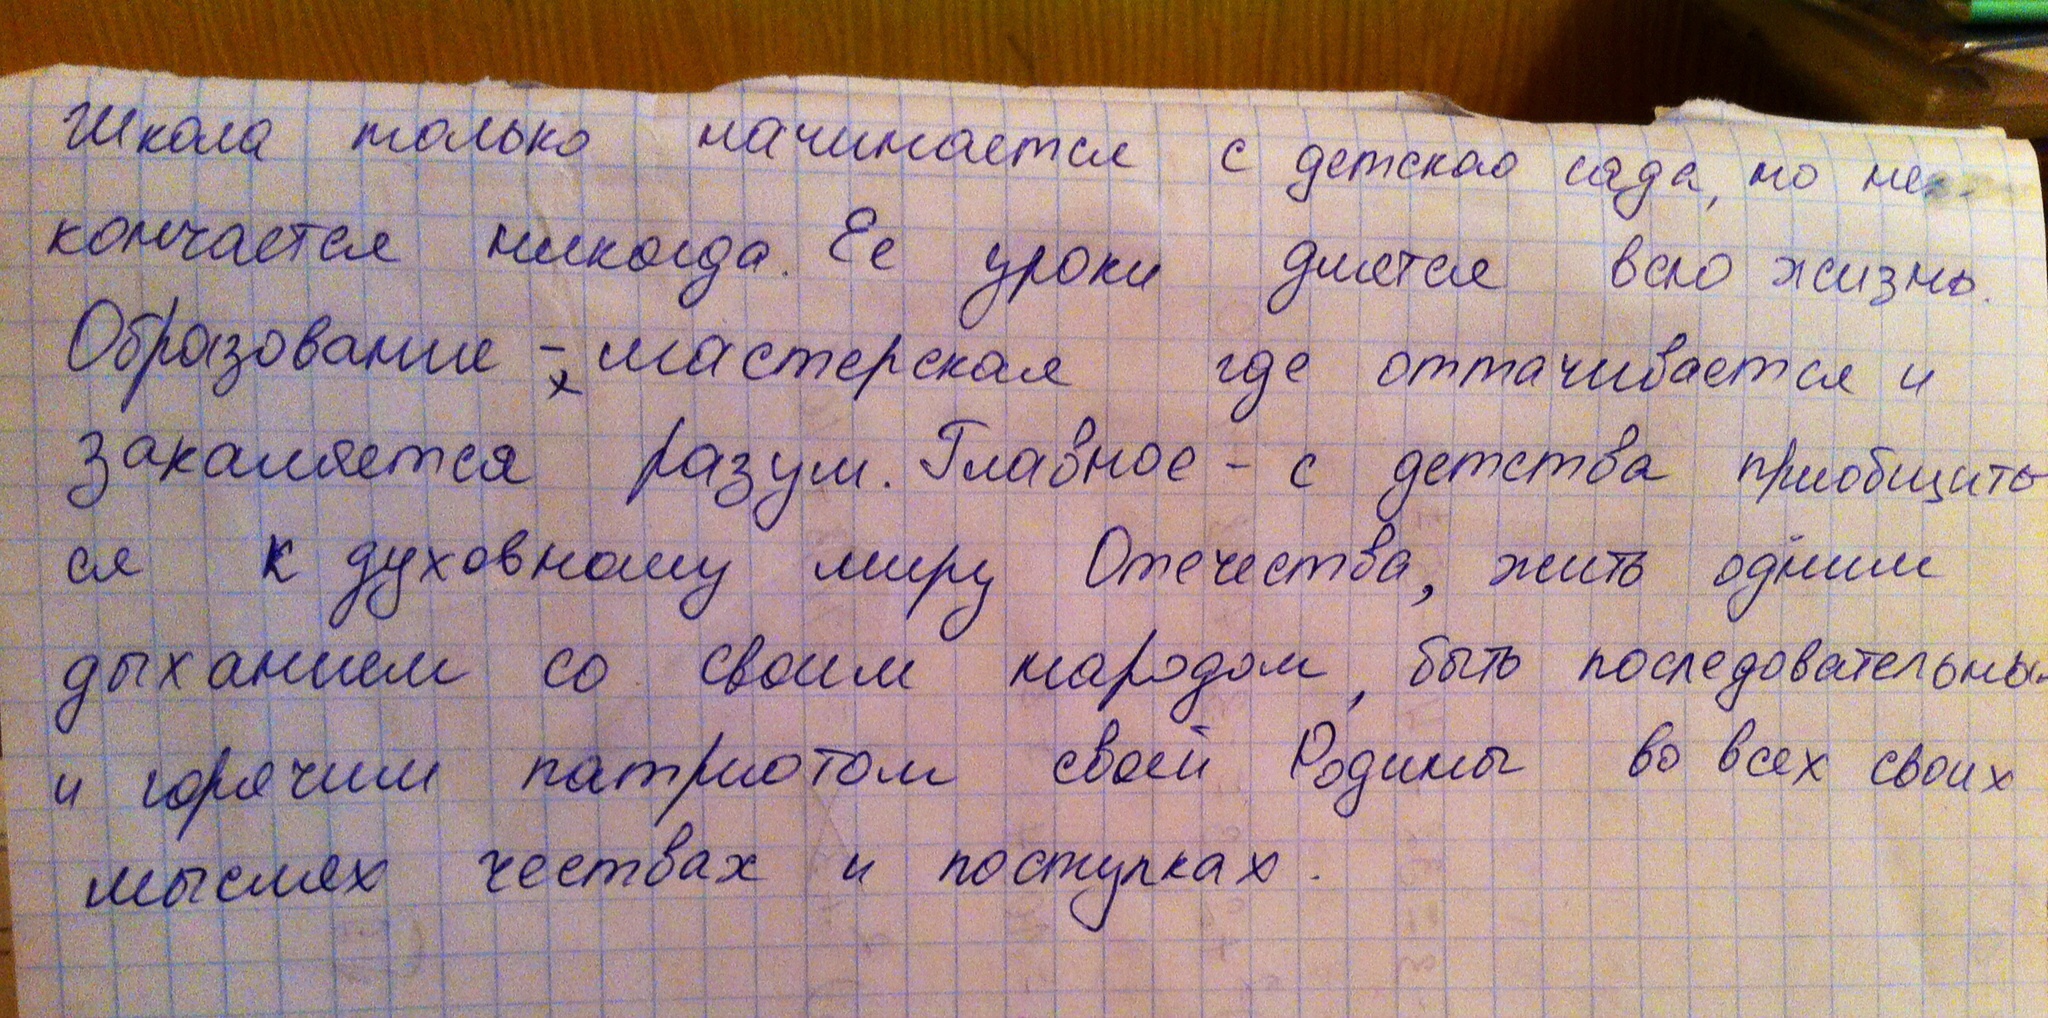 Школа только начинается с детская сада, но не
кончается никогда. Ее уроки длятся всю жизнь.
Образование - мастерская где оттачивается и
закаляется разум. Главное - с детства приобщить
ся к духовному миру Отечества, жить одним
дыханием со своим народом, быть последовательны
и горячим патриотом своей Родины во всех своих
мыслях чествах и поступках.